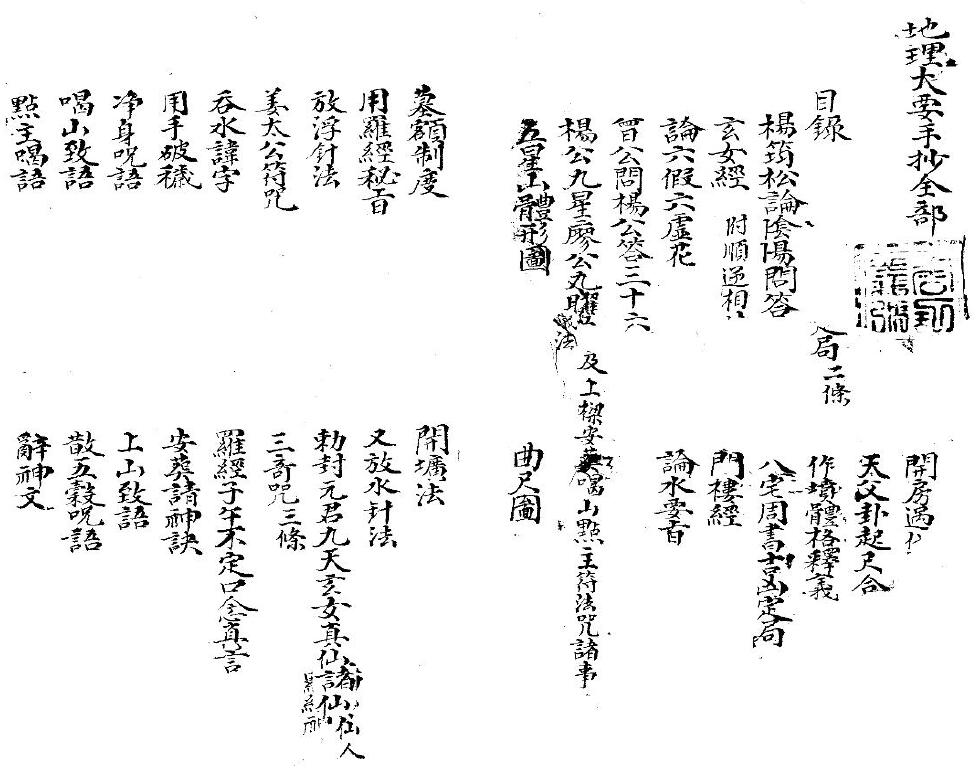 地理大要手抄全部
目錄
楊筠松論陰陽問答
玄女經 附順逆相
論六假六虛花
曾公問楊公答三十六
楊公九星廖公九曜
法
五星山體形圖
局二條
及上樑安葬喝山點主符法咒諸事
開房遇
天父卦起尺合
作墳體格釋義
八宅周書吉凶定局
門樓經
論水要旨
曲尺圖
墓額制度
用羅經秘旨
放浮針法
姜太公符咒
吞水諱字
用手破穢
净身咒語
喝山致語
點主喝語
開壙法
又放水針法
勅封元君九天玄女真仙諸仙
仙人
三奇咒三條
羅經子午不定口念真言
安葬請神訣
上山致語
散五穀咒語
辭神文